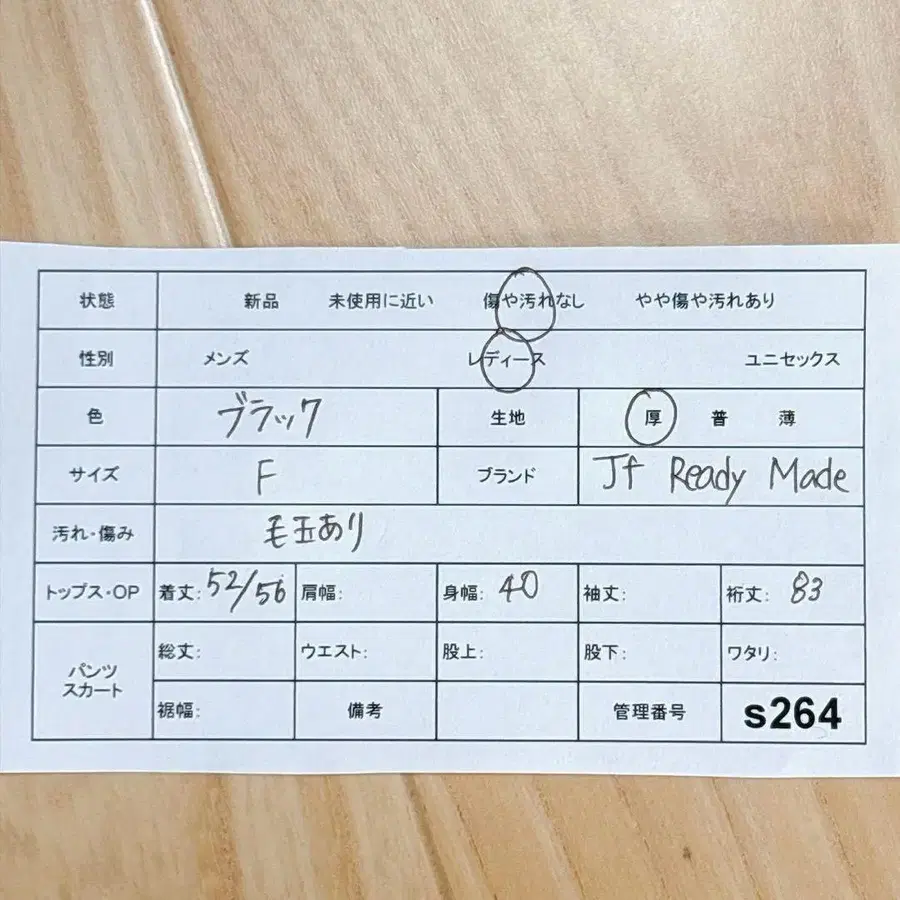 状態 新品 未使用に近い 傷や汚れなし やや傷や汚れあり
性別 メンズ レディース ユニセックス
色 ブラック 生地 厚 普 薄
サイズ F ブランド Jf Ready Made
汚れ・傷み 毛玉あり
トップス・OP 着丈: 52/56 肩幅: 身幅: 40 袖丈: 裄丈: 83
パンツ
スカート
総丈: ウエスト: 股上: 股下: ワタリ:
裾幅: 備考 管理番号 s264